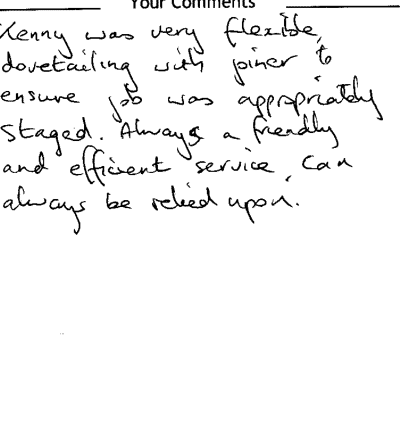 Your Comments
Kenny was very flexible,
dovetailing with joiner to
ensure job was appropriately
staged. Always a friendly
and efficient service. Can
always be relied upon.